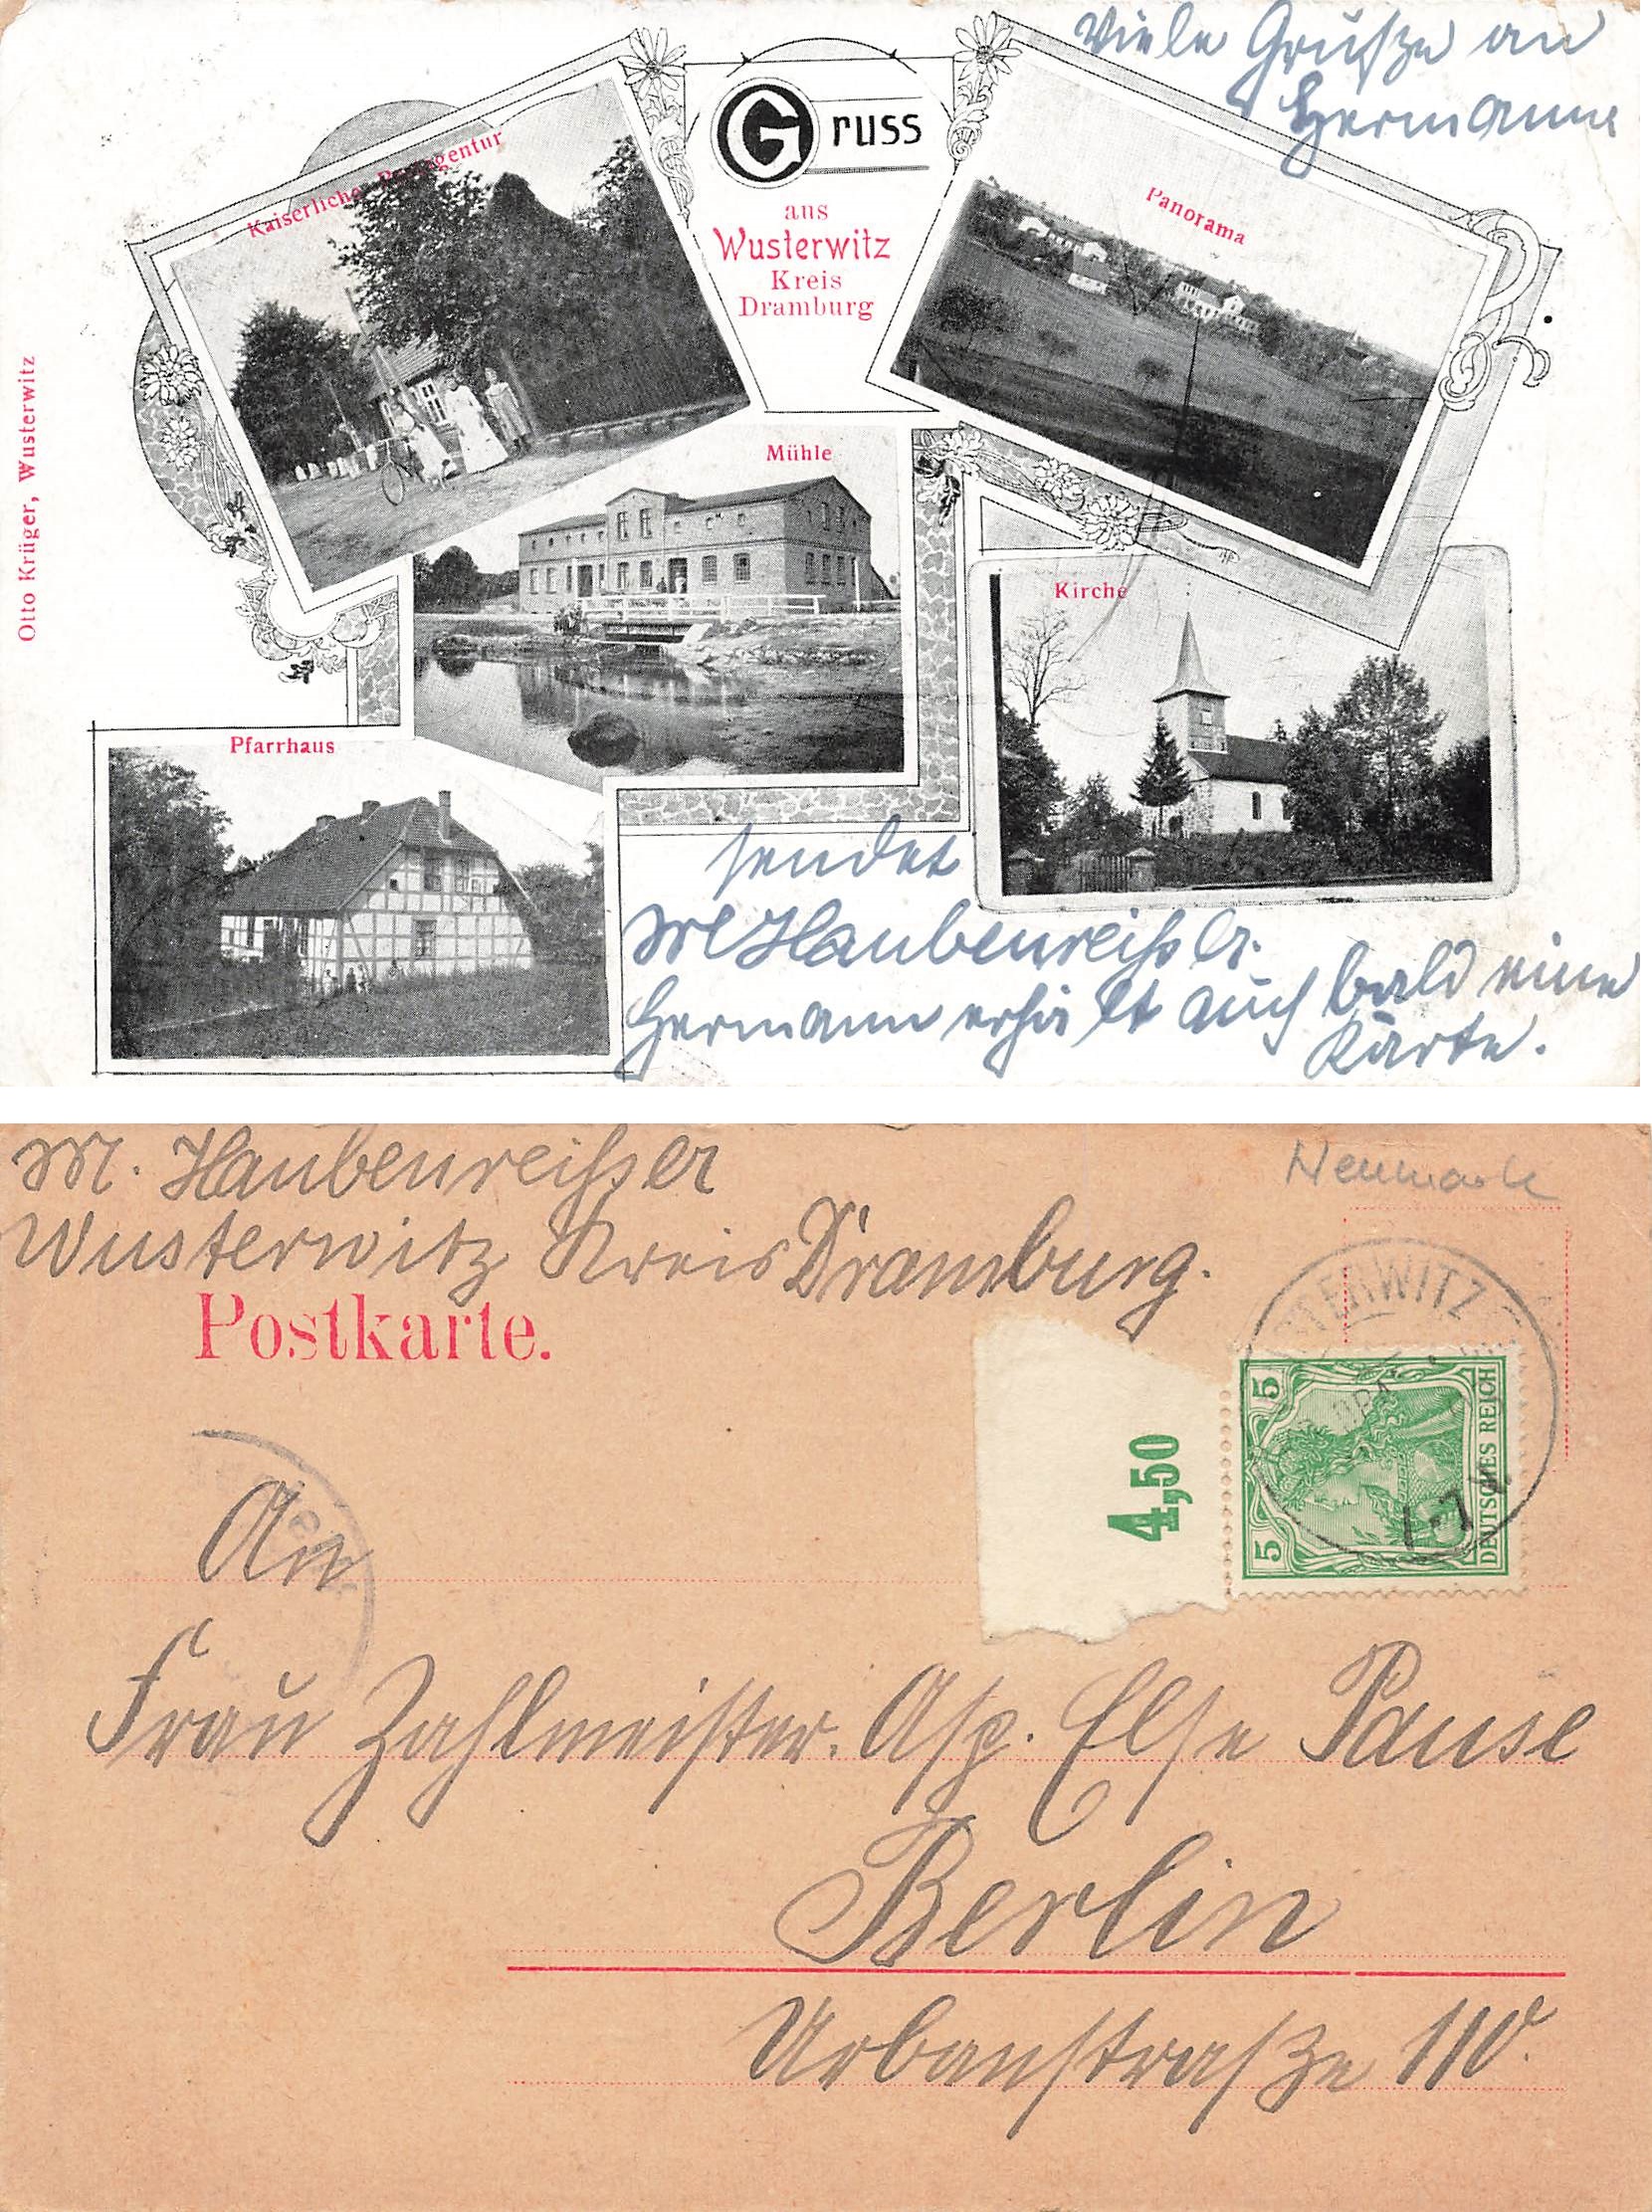 Viele Grüße an
Hermann
Gruss
aus
Wusterwitz
Kreis
Dramburg
Kaiserliche Postagentur
Panorama
Mühle
Kirche
Pfarrhaus
Otto Krüger, Wusterwitz
sendet
M Haubenreißer.
Hermann erhält auch bald eine
Karte.
M. Haubenreißer
Neumark
Wusterwitz Kreis Dramburg.
Postkarte.
WITZ
5
5
DEUTSCHES REICH
4,50
An
Frau Zahlmeister. Asp. Else Pause
Berlin
Urbanstraße 110.